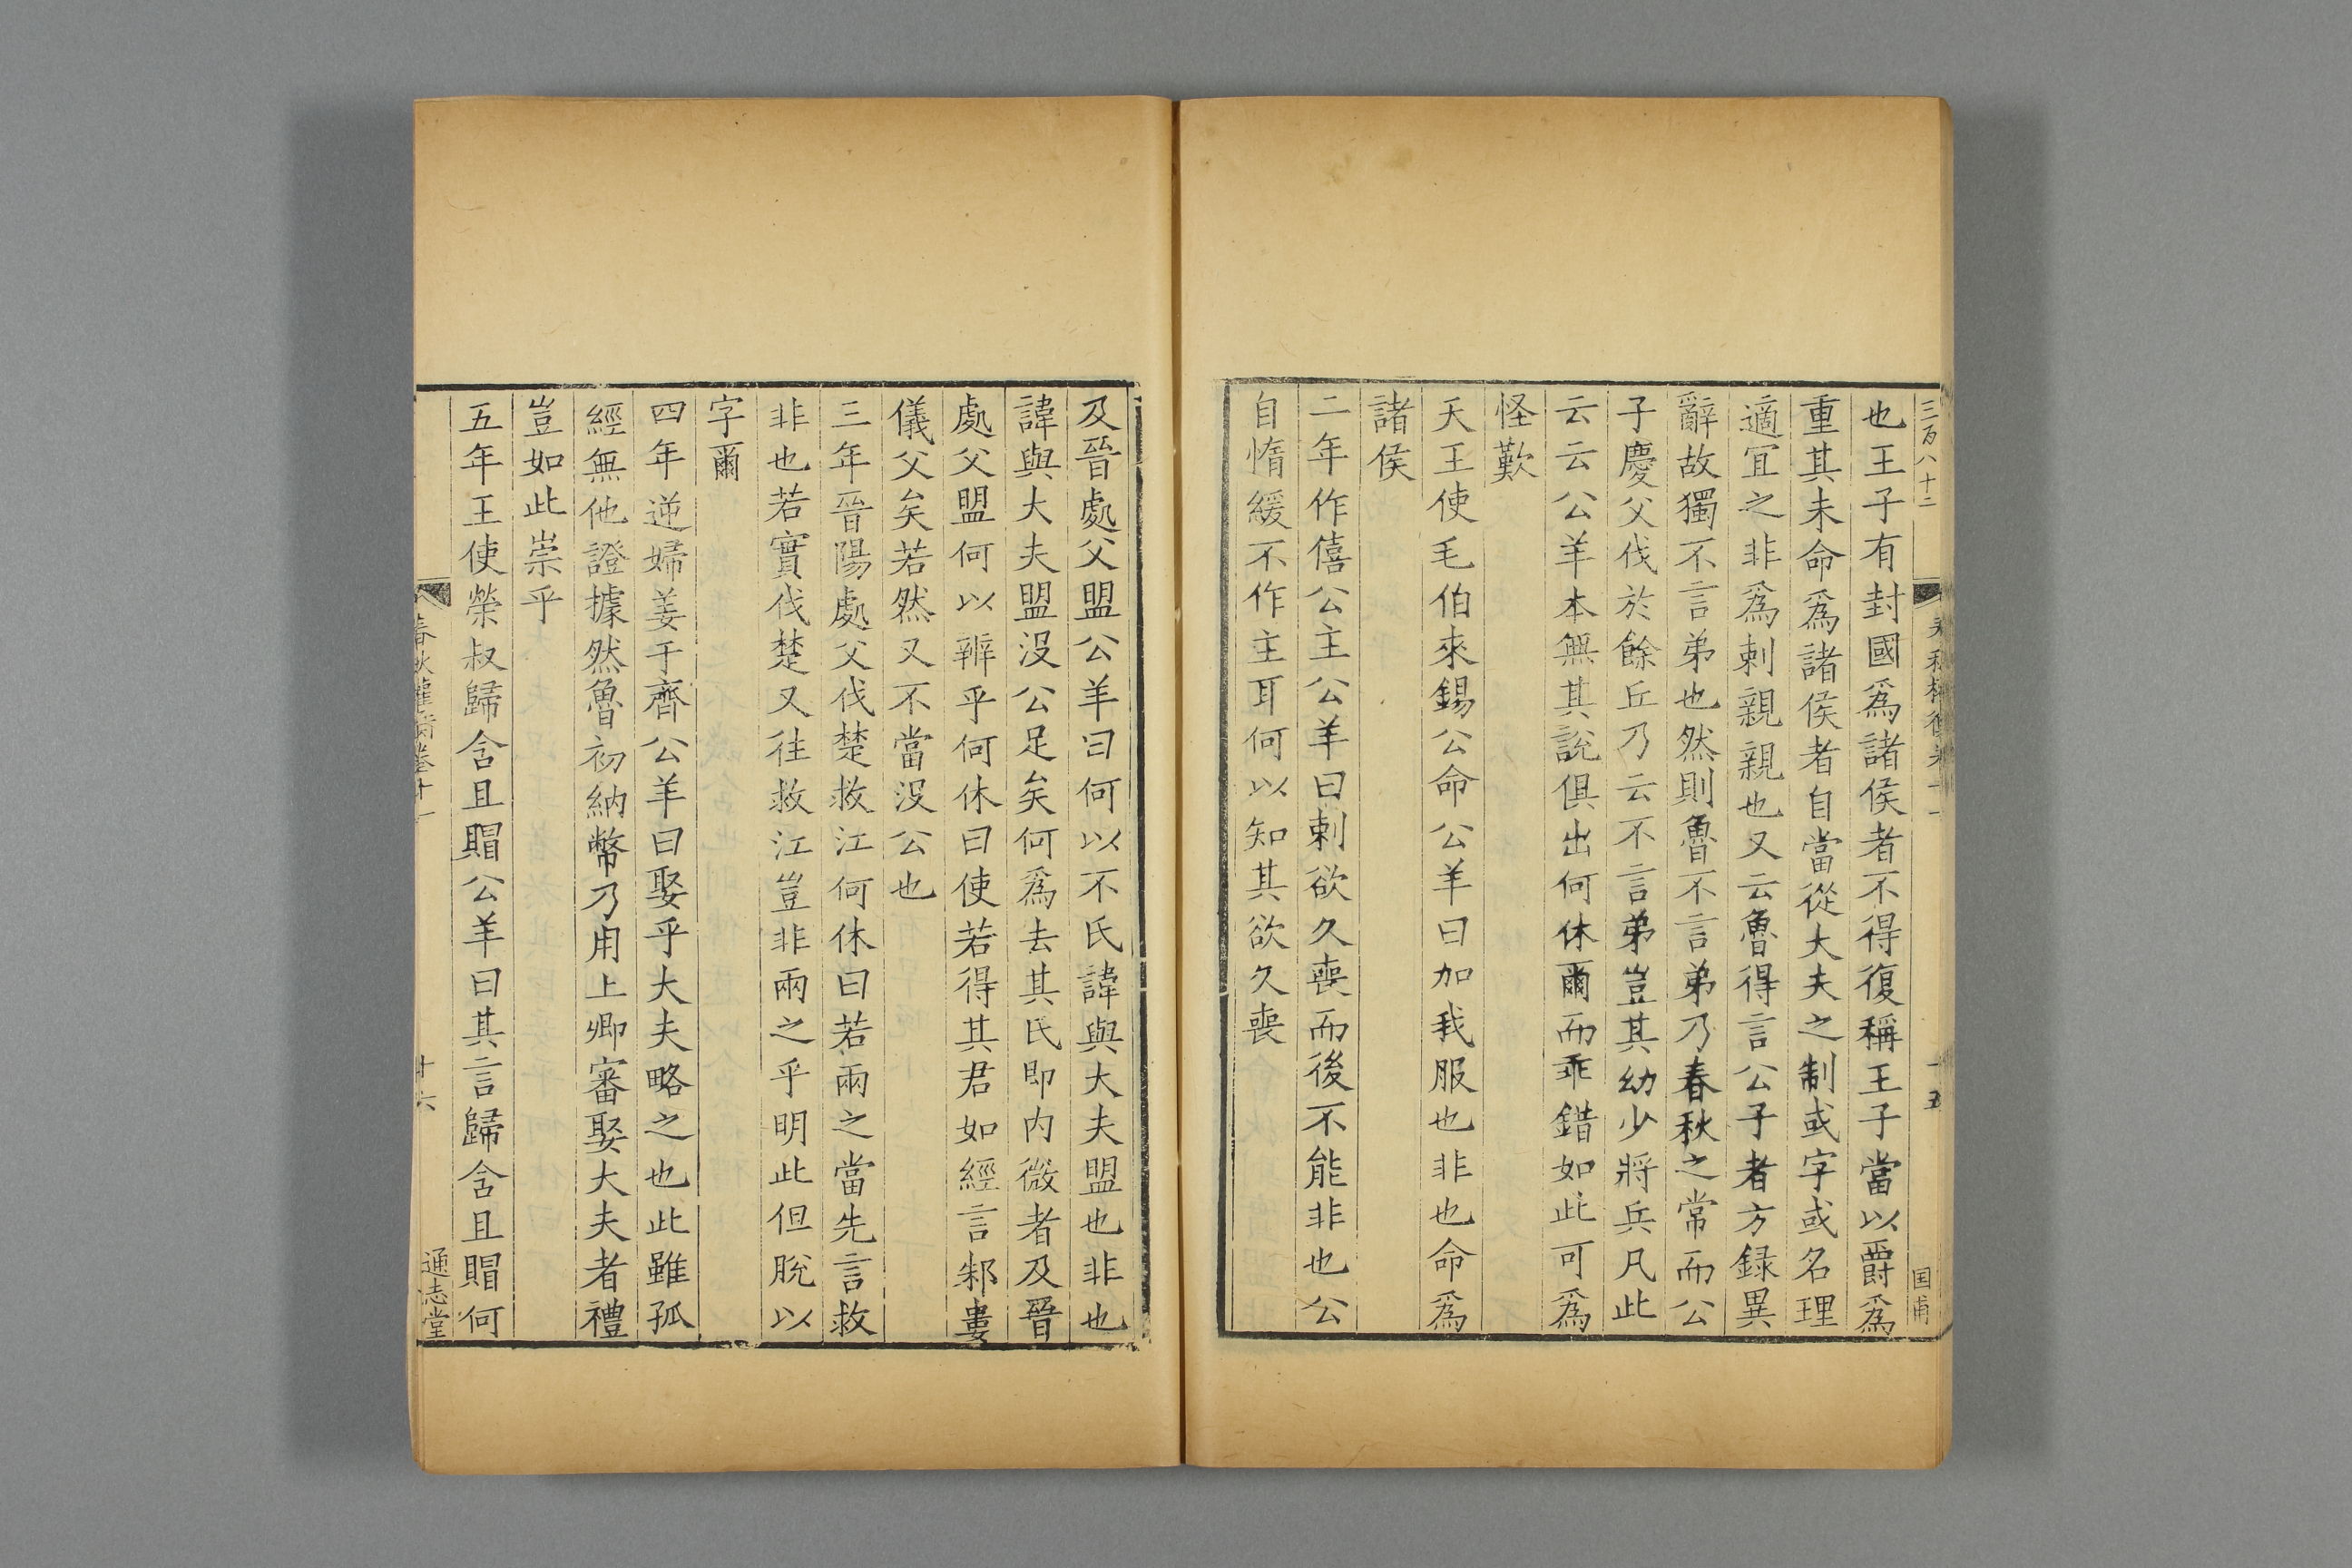 三百八十二
春秋權衡卷十一
十五
国甫
也王子有封國爲諸侯者不得復稱王子當以爵爲
重其未命爲諸侯者自當從大夫之制或字或名理
適宜之非爲剌親親也又云魯得言公子者方録異
辭故獨不言弟也然則魯不言弟乃春秋之常而公
子慶父伐於餘丘乃云不言弟豈其幼少將兵凡此
云云公羊本無其說俱出何休爾而乖錯如此可爲
怪歎
天王使毛伯來錫公命公羊曰加我服也非也命爲
諸侯
二年作僖公主公羊曰剌欲久喪而後不能非也公
自惰緩不作主耳何以知其欲久喪
及晉處父盟公羊曰何以不氏諱與大夫盟也非也
諱與大夫盟没公足矣何爲去其氏即内微者及晉
處父盟何以辨乎何休曰使若得其君如經言邾婁
儀父矣若然又不當没公也
三年晉陽處父伐楚救江何休曰若兩之當先言救
非也若實伐楚又往救江豈非兩之乎明此但脫以
字爾
四年逆婦姜于齊公羊曰娶乎大夫略之也此雖孤
經無他證據然魯初納幣乃用上卿審娶大夫者禮
豈如此崇乎
五年王使榮叔歸含且賵公羊曰其言歸含且賵何
春秋權衡卷十一
十六
通志堂